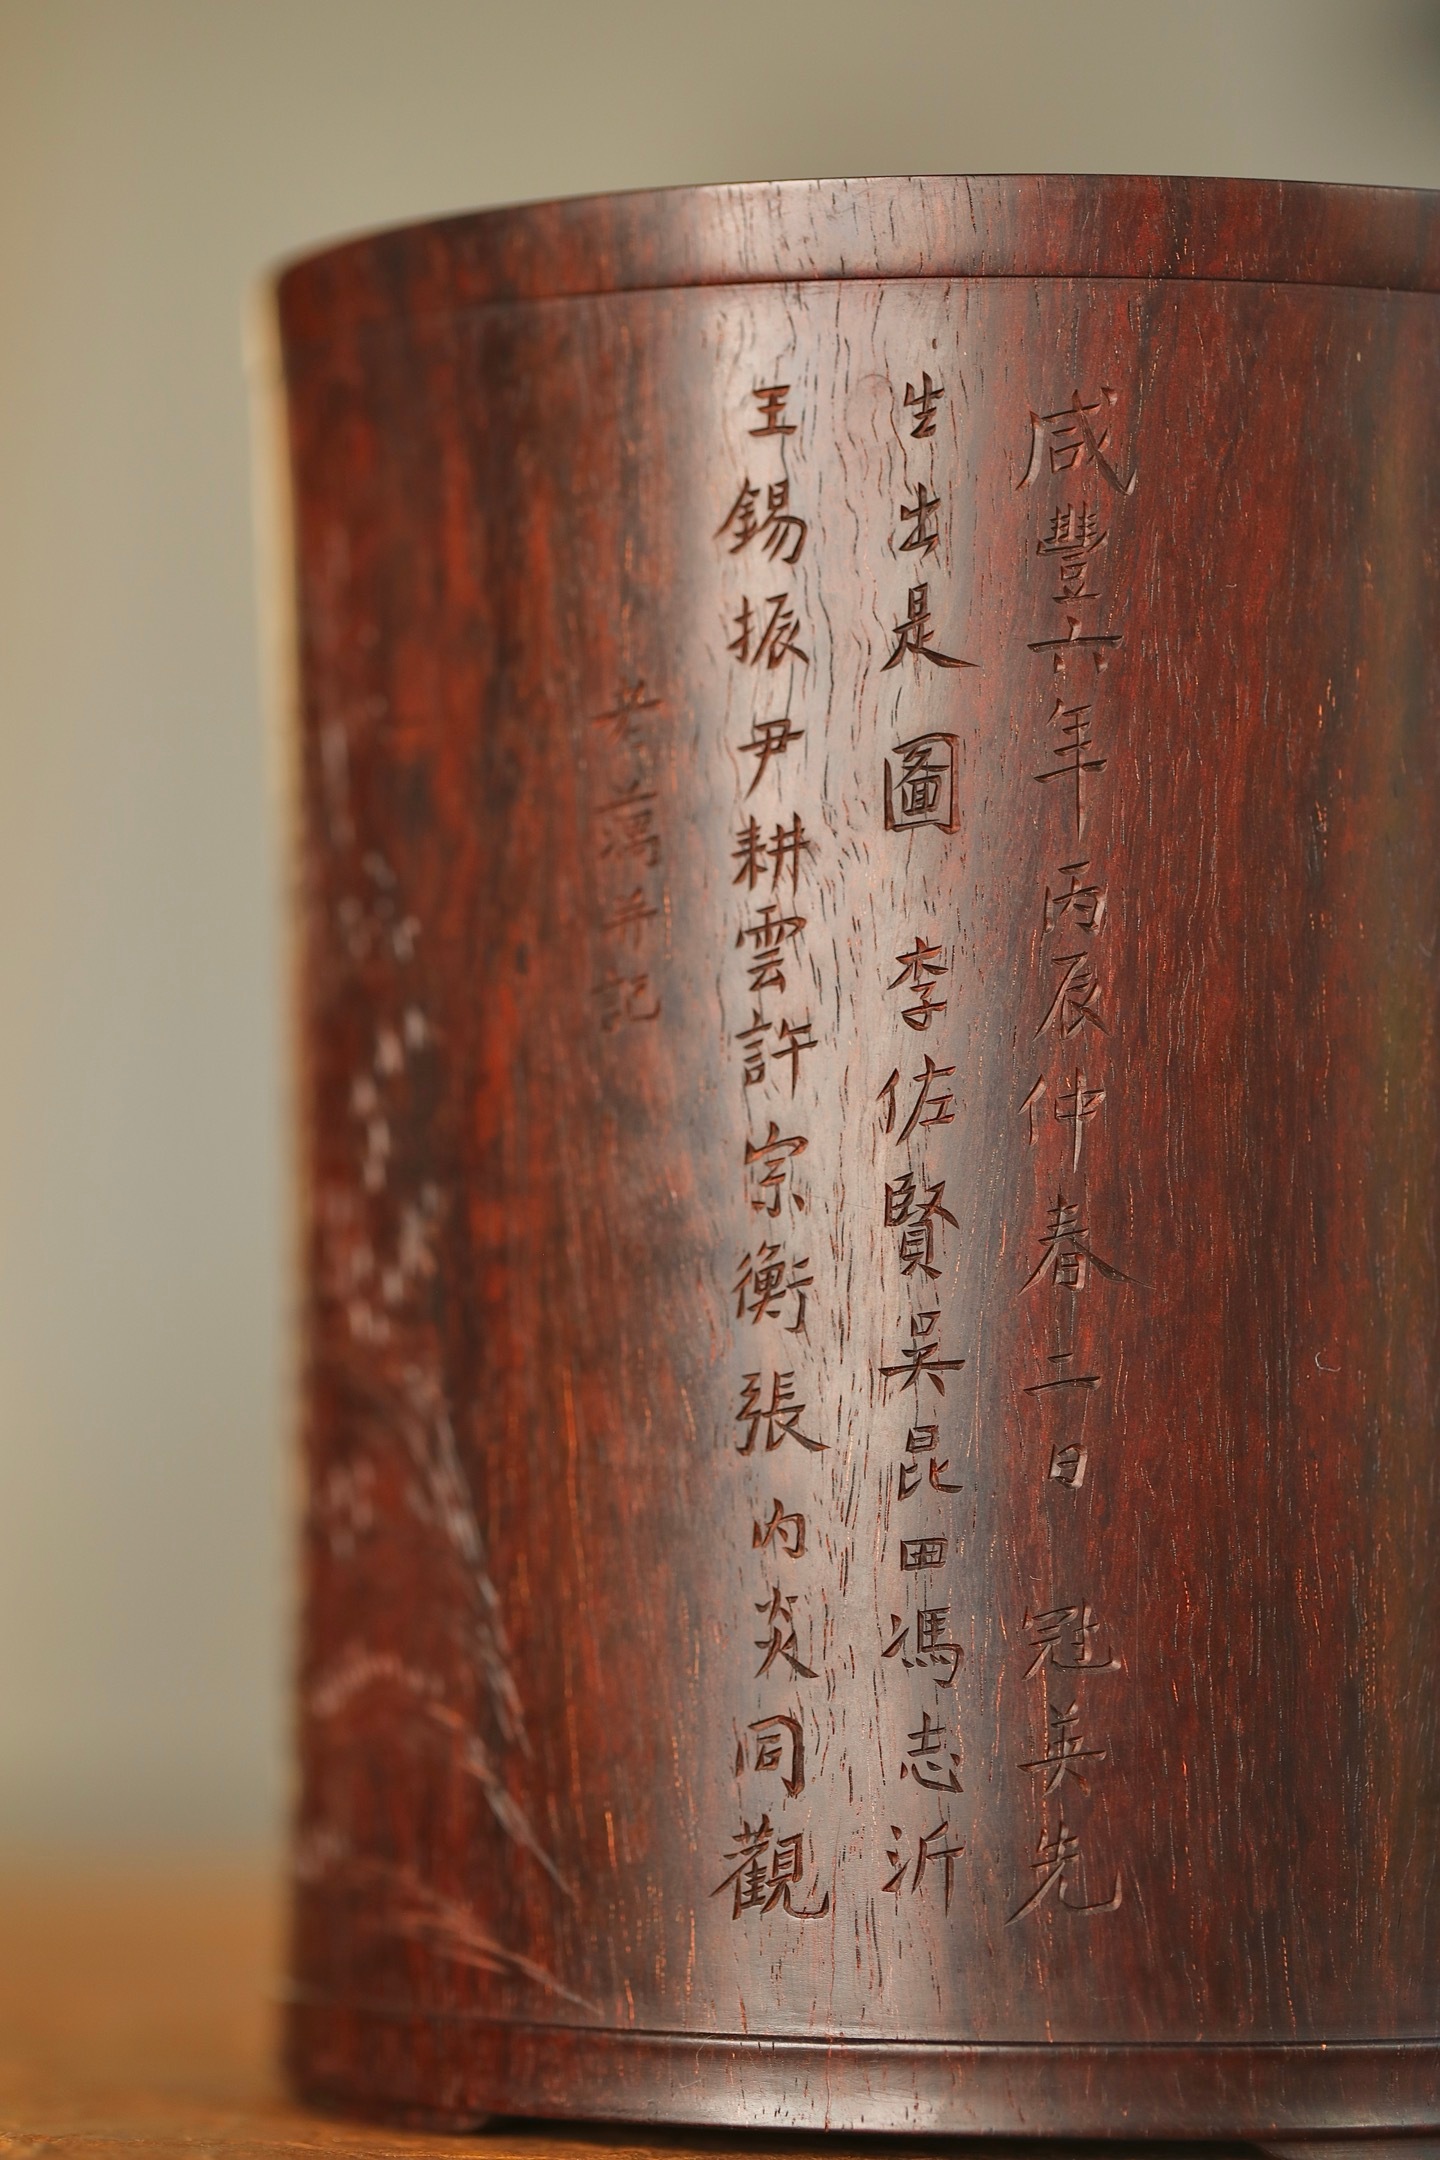 咸豐六年丙辰仲春二日冠英先
生出是圖李佐賢吳昆田馮志沂
王錫振尹耕雲許宗衡張內炎同觀
記